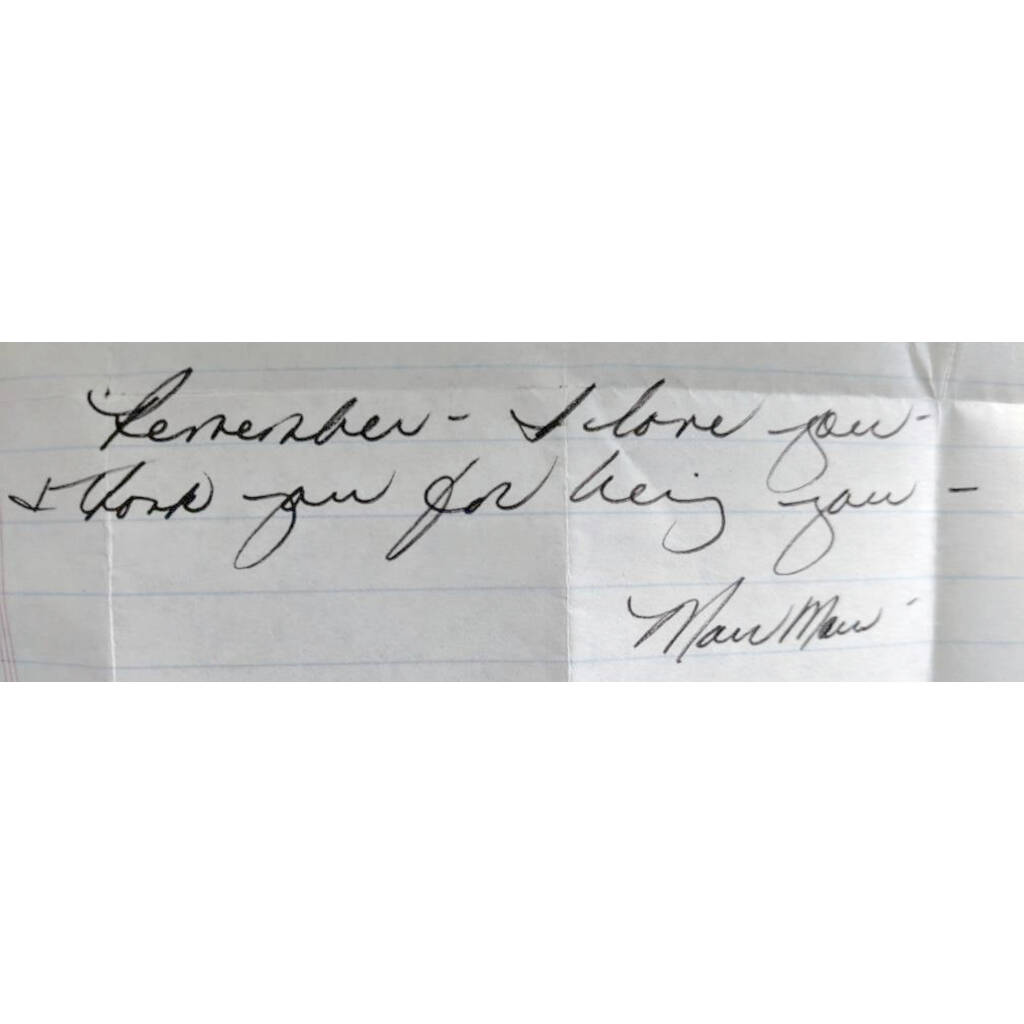 Remember - I love you -
& thank you for being you -
Maw Maw